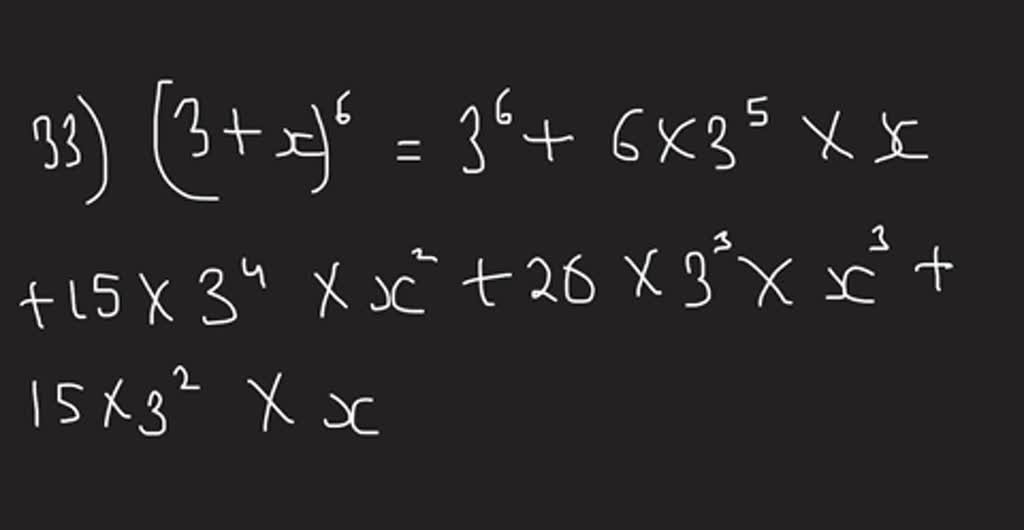 33) (3+x)⁶ = 3⁶ + 6×3⁵ × x
+15 × 3⁴ × x² + 20 × 3³ × x³ +
15×3² × x